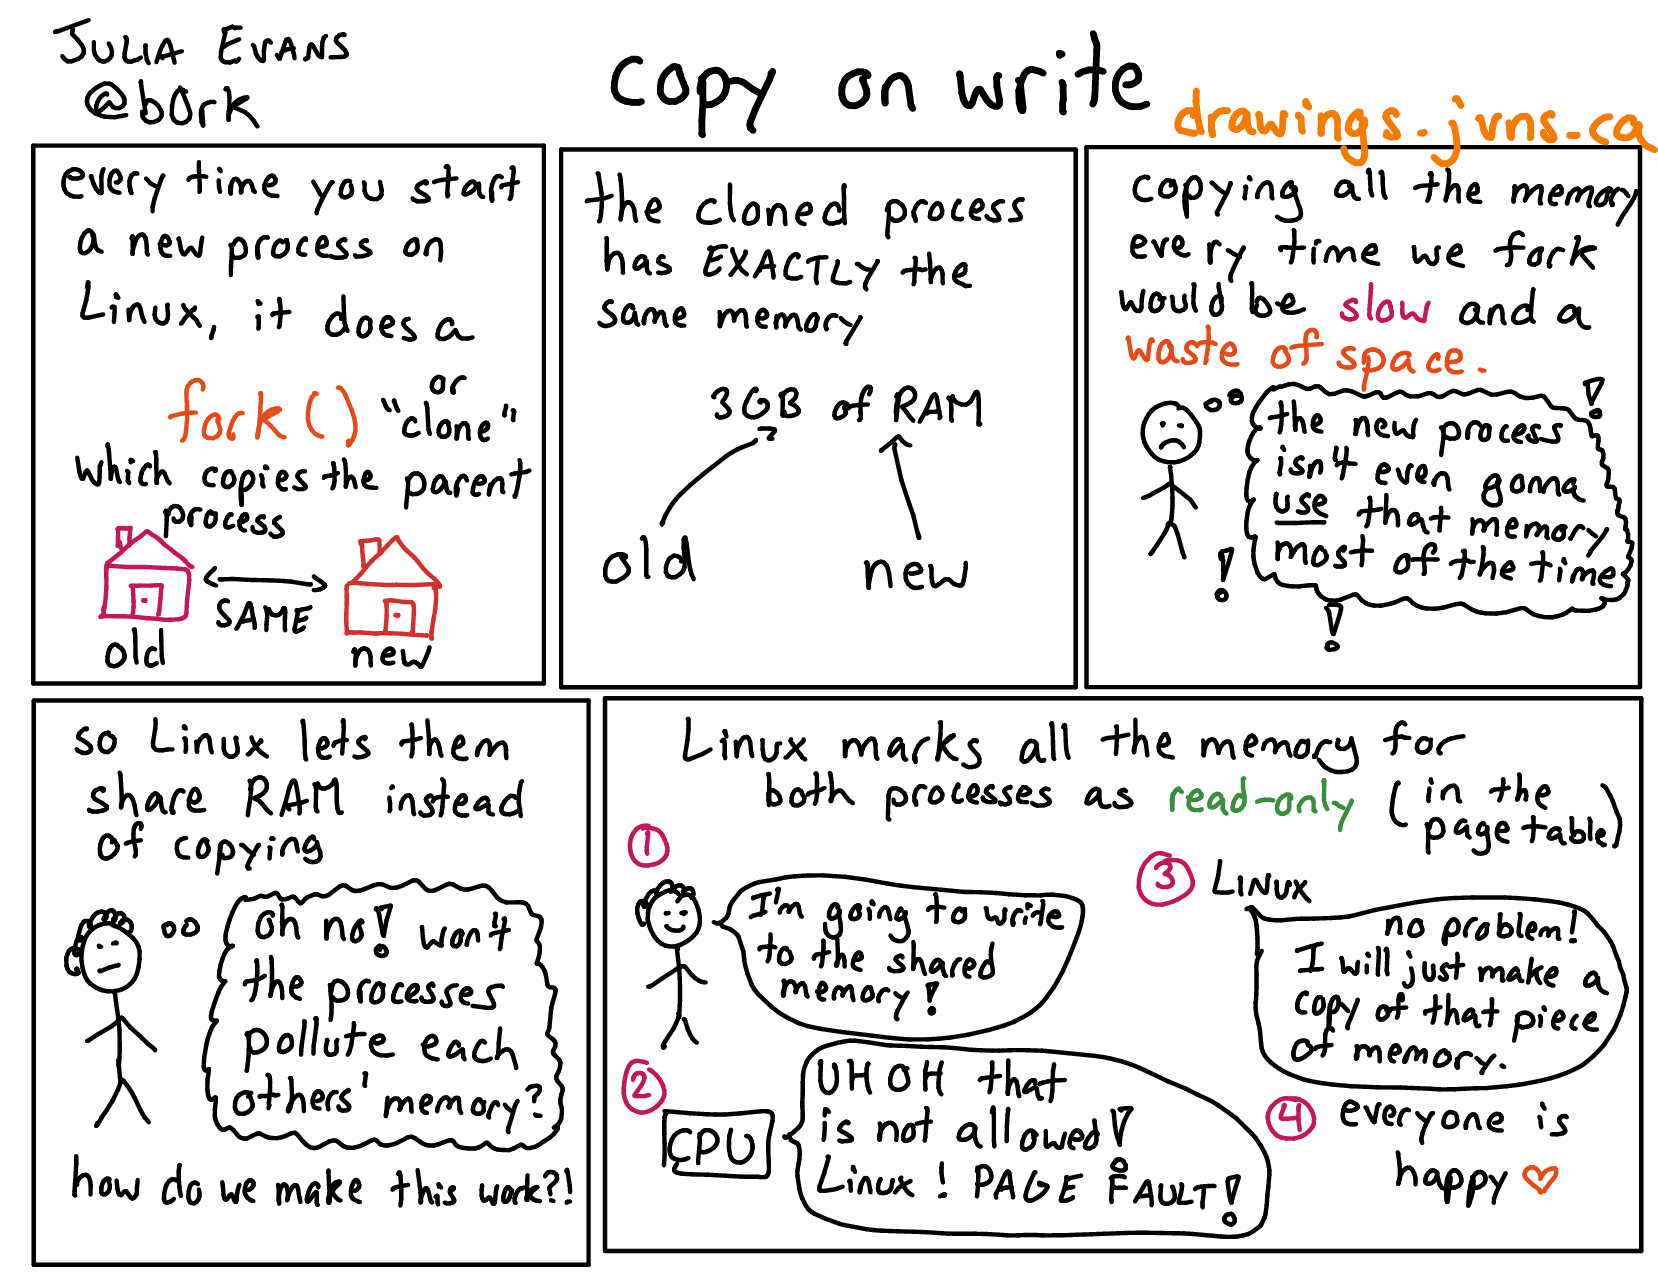 JULIA EVANS
@b0rk
copy on write
drawings.jvns.ca
every time you start
a new process on
Linux, it does a
fork() or "clone"
which copies the parent
process
SAME
old
new
the cloned process
has EXACTLY the
same memory
3GB of RAM
old
new
copying all the memory
every time we fork
would be slow and a
waste of space.
the new process
isn't even gonna
use that memory
most of the time
!
!
!
so Linux lets them
share RAM instead
of copying
oh no! won't
the processes
pollute each
others' memory?
how do we make this work?!
Linux marks all the memory for
both processes as read-only (in the
page table)
1
I'm going to write
to the shared
memory!
2
CPU
UH OH that
is not allowed!
Linux! PAGE FAULT!
3 LINUX
no problem!
I will just make a
copy of that piece
of memory.
4 everyone is
happy ♡